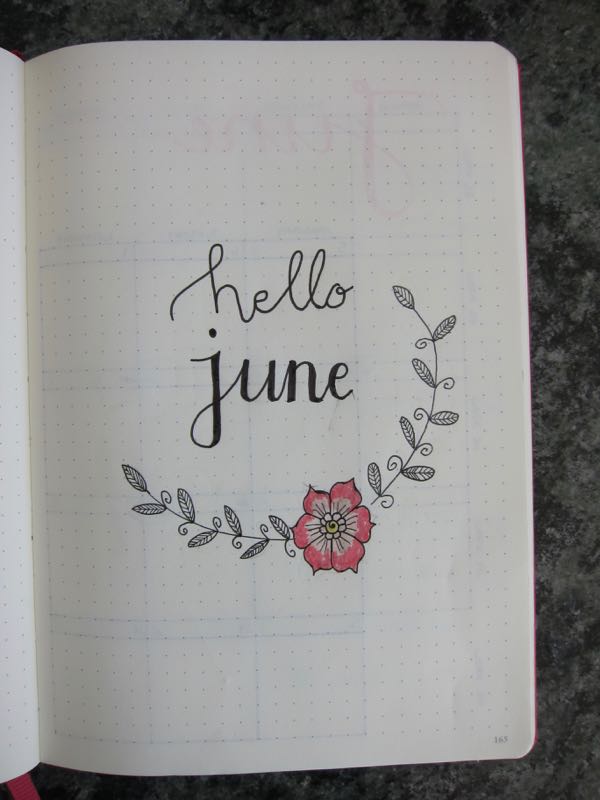 hello
june
165